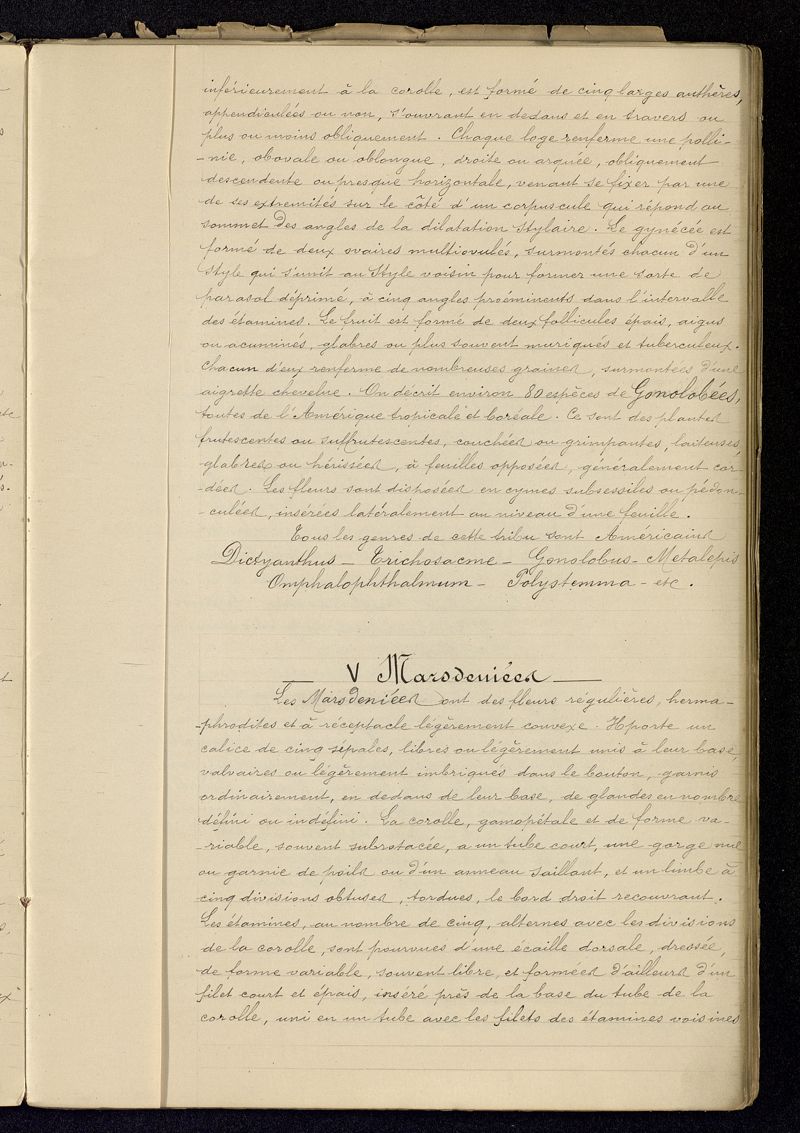 inférieurement à la corolle, est formé de cinq larges anthères,
appendiculées ou non, s'ouvrant en dedans et en travers ou
plus ou moins obliquement. Chaque loge renferme une polli-
-nie, obovale ou oblongue, droite ou arquée, obliquement
descendente ou presque horizontale, venant se fixer par une
de ses extremités sur le côté d'un corpuscule qui répond au
sommet des angles de la dilatation stylaire. Le gynécée est
formé de deux ovaires multiovulés, surmontés chacun d'un
style qui s'unit au style voisin pour former une sorte de
parasol déprimé, à cinq angles proéminents dans l'intervalle
des étamines. Le fruit est formé de deux follicules épais, aigus
ou acuminés, glabres ou plus souvent muriqués et tuberculeux.
Chacun d'eux renferme de nombreuses graines, surmontées d'une
aigrette chevelue. On décrit environ 80 espèces de Gonolobées,
toutes de l'Amérique tropicale et boréale. Ce sont des plantes
frutescentes ou suffrutescentes, couchées ou grimpantes, laiteuses,
glabres ou hérissées, à feuilles opposées, généralement cor-
dées. Les fleurs sont disposées en cymes subsessiles ou pédon-
-culées, insérées latéralement au niveau d'une feuille.
Tous les genres de cette tribu sont Américains
Dictyanthus - Trichosacme - Gonolobus - Metalepis
Omphalophthalmum - Polystemma - etc.
V Marsdeniées
Les Marsdeniées ont des fleurs régulières, herma-
-phrodites et à réceptacle légèrement convexe. Il porte un
calice de cinq sépales, libres ou légèrement unis à leur base,
valvaires ou légèrement imbriqués dans le bouton, garnis
ordinairement, en dedans de leur base, de glandes en nombre
défini ou indéfini. La corolle, gamopétale et de forme va-
-riable, souvent subrotacée, a un tube court, une gorge nue
ou garnie de poils ou d'un anneau saillant, et un limbe à
cinq divisions obtuses, tordues, le bord droit recouvrant.
Les étamines, au nombre de cinq, alternes avec les divisions
de la corolle, sont pourvues d'une écaille dorsale, dressée,
de forme variable, souvent libre, et formées d'ailleurs d'un
filet court et épais, inséré près de la base du tube de la
corolle, uni en un tube avec les filets des étamines voisines